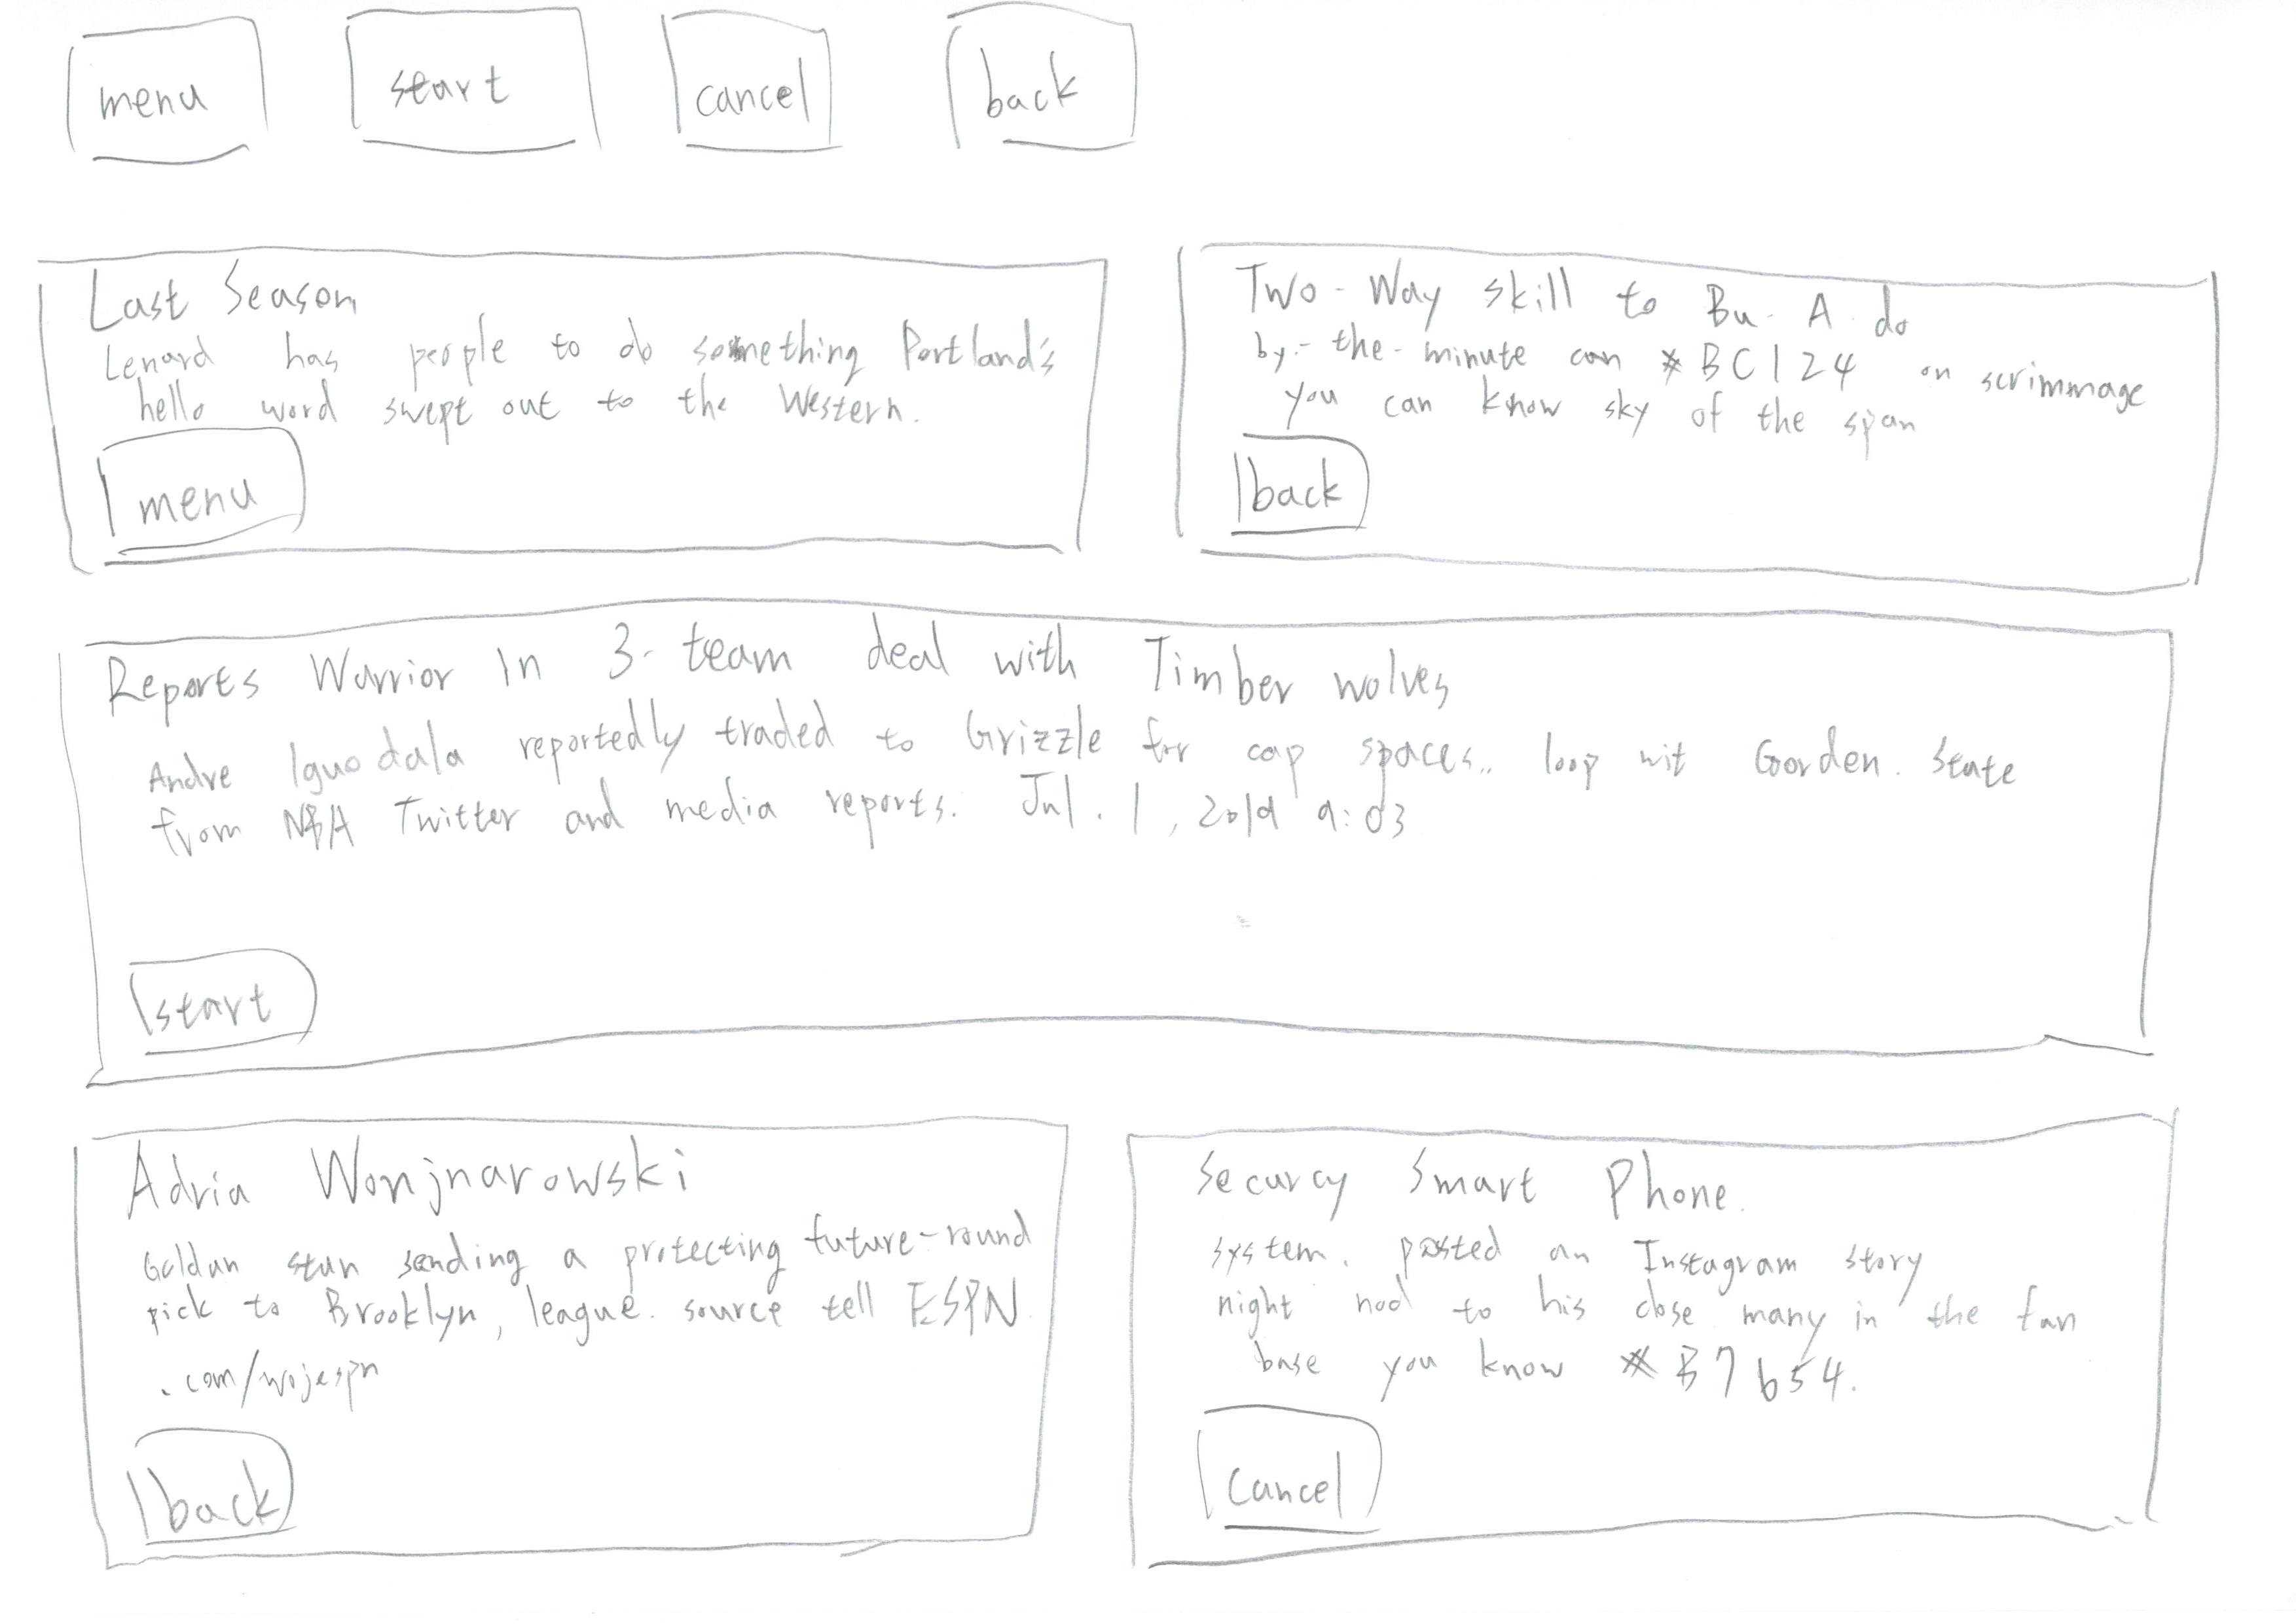 menu
start
cancel
back
Last Season
Lenard has people to do something Portland's
hello word swept out to the Western.
menu
Two-Way skill to Bu. A. do
by-the-minute can *BC124 on scrimmage
you can know sky of the span
back
Reports Warrior In 3-team deal with Timber wolves
Andre Iguodala reportedly traded to Grizzle for cap spaces.. loop wit Goorden. State
from NBA Twitter and media reports. Jul. 1, 2019 9:03
start
Adria Wonjnarowski
Goldan stun sending a protecting future-round
pick to Brooklyn, league. source tell ESPN
.com/wojespn
back
Securcy Smart Phone.
system. posted an Instagram story
night nod to his close many in the fan
base you know *B7654.
cancel